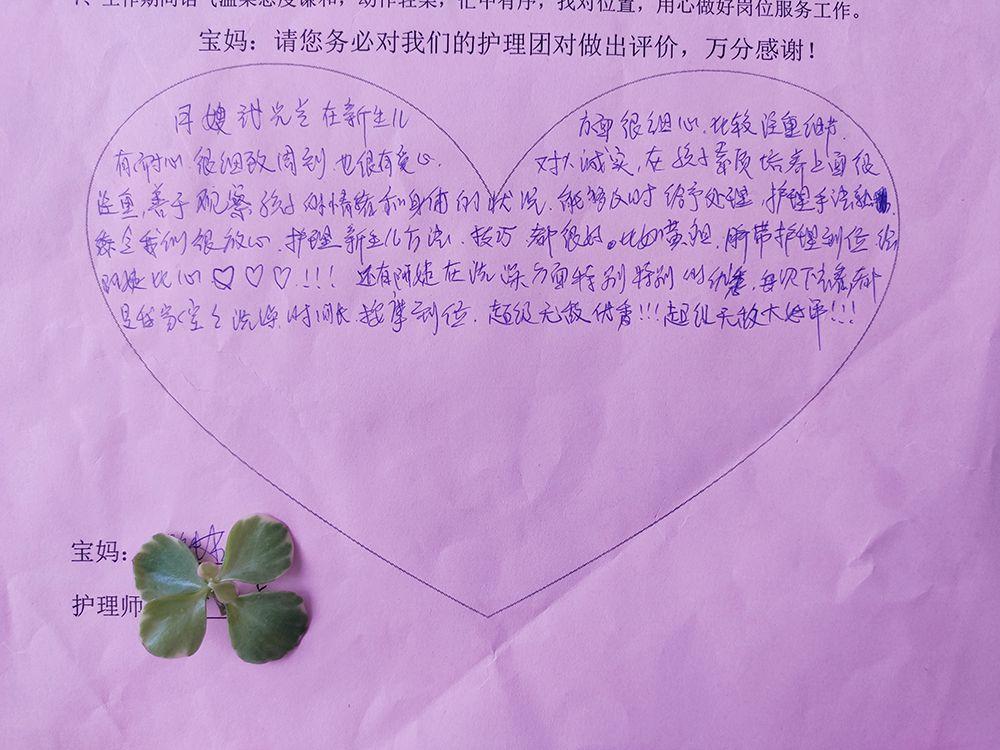 7、工作期间语气温柔态度谦和，动作轻柔，忙中有序，找对位置，用心做好岗位服务工作。
宝妈：请您务必对我们的护理团对做出评价，万分感谢！
月嫂 在新生儿 方面很细心.比较注重细节.
有耐心.很细致周到 也很有爱心. 对人诚实,在孩子素质培养上面很
注重,善于观察孩子的情绪和身体的状况.能够及时给予处理.护理手法熟
令我们很放心.护理新生儿方法、技巧都很好。比如黄疸.脐带护理到位 给
阿姨比心♡♡♡!!!还有阿姨在洗澡方面特别特别的优秀,每次下
是我家宝宝洗澡时间长.按摩到位.超级无敌优秀!!!超级无敌大好评!!!
宝妈：
护理师